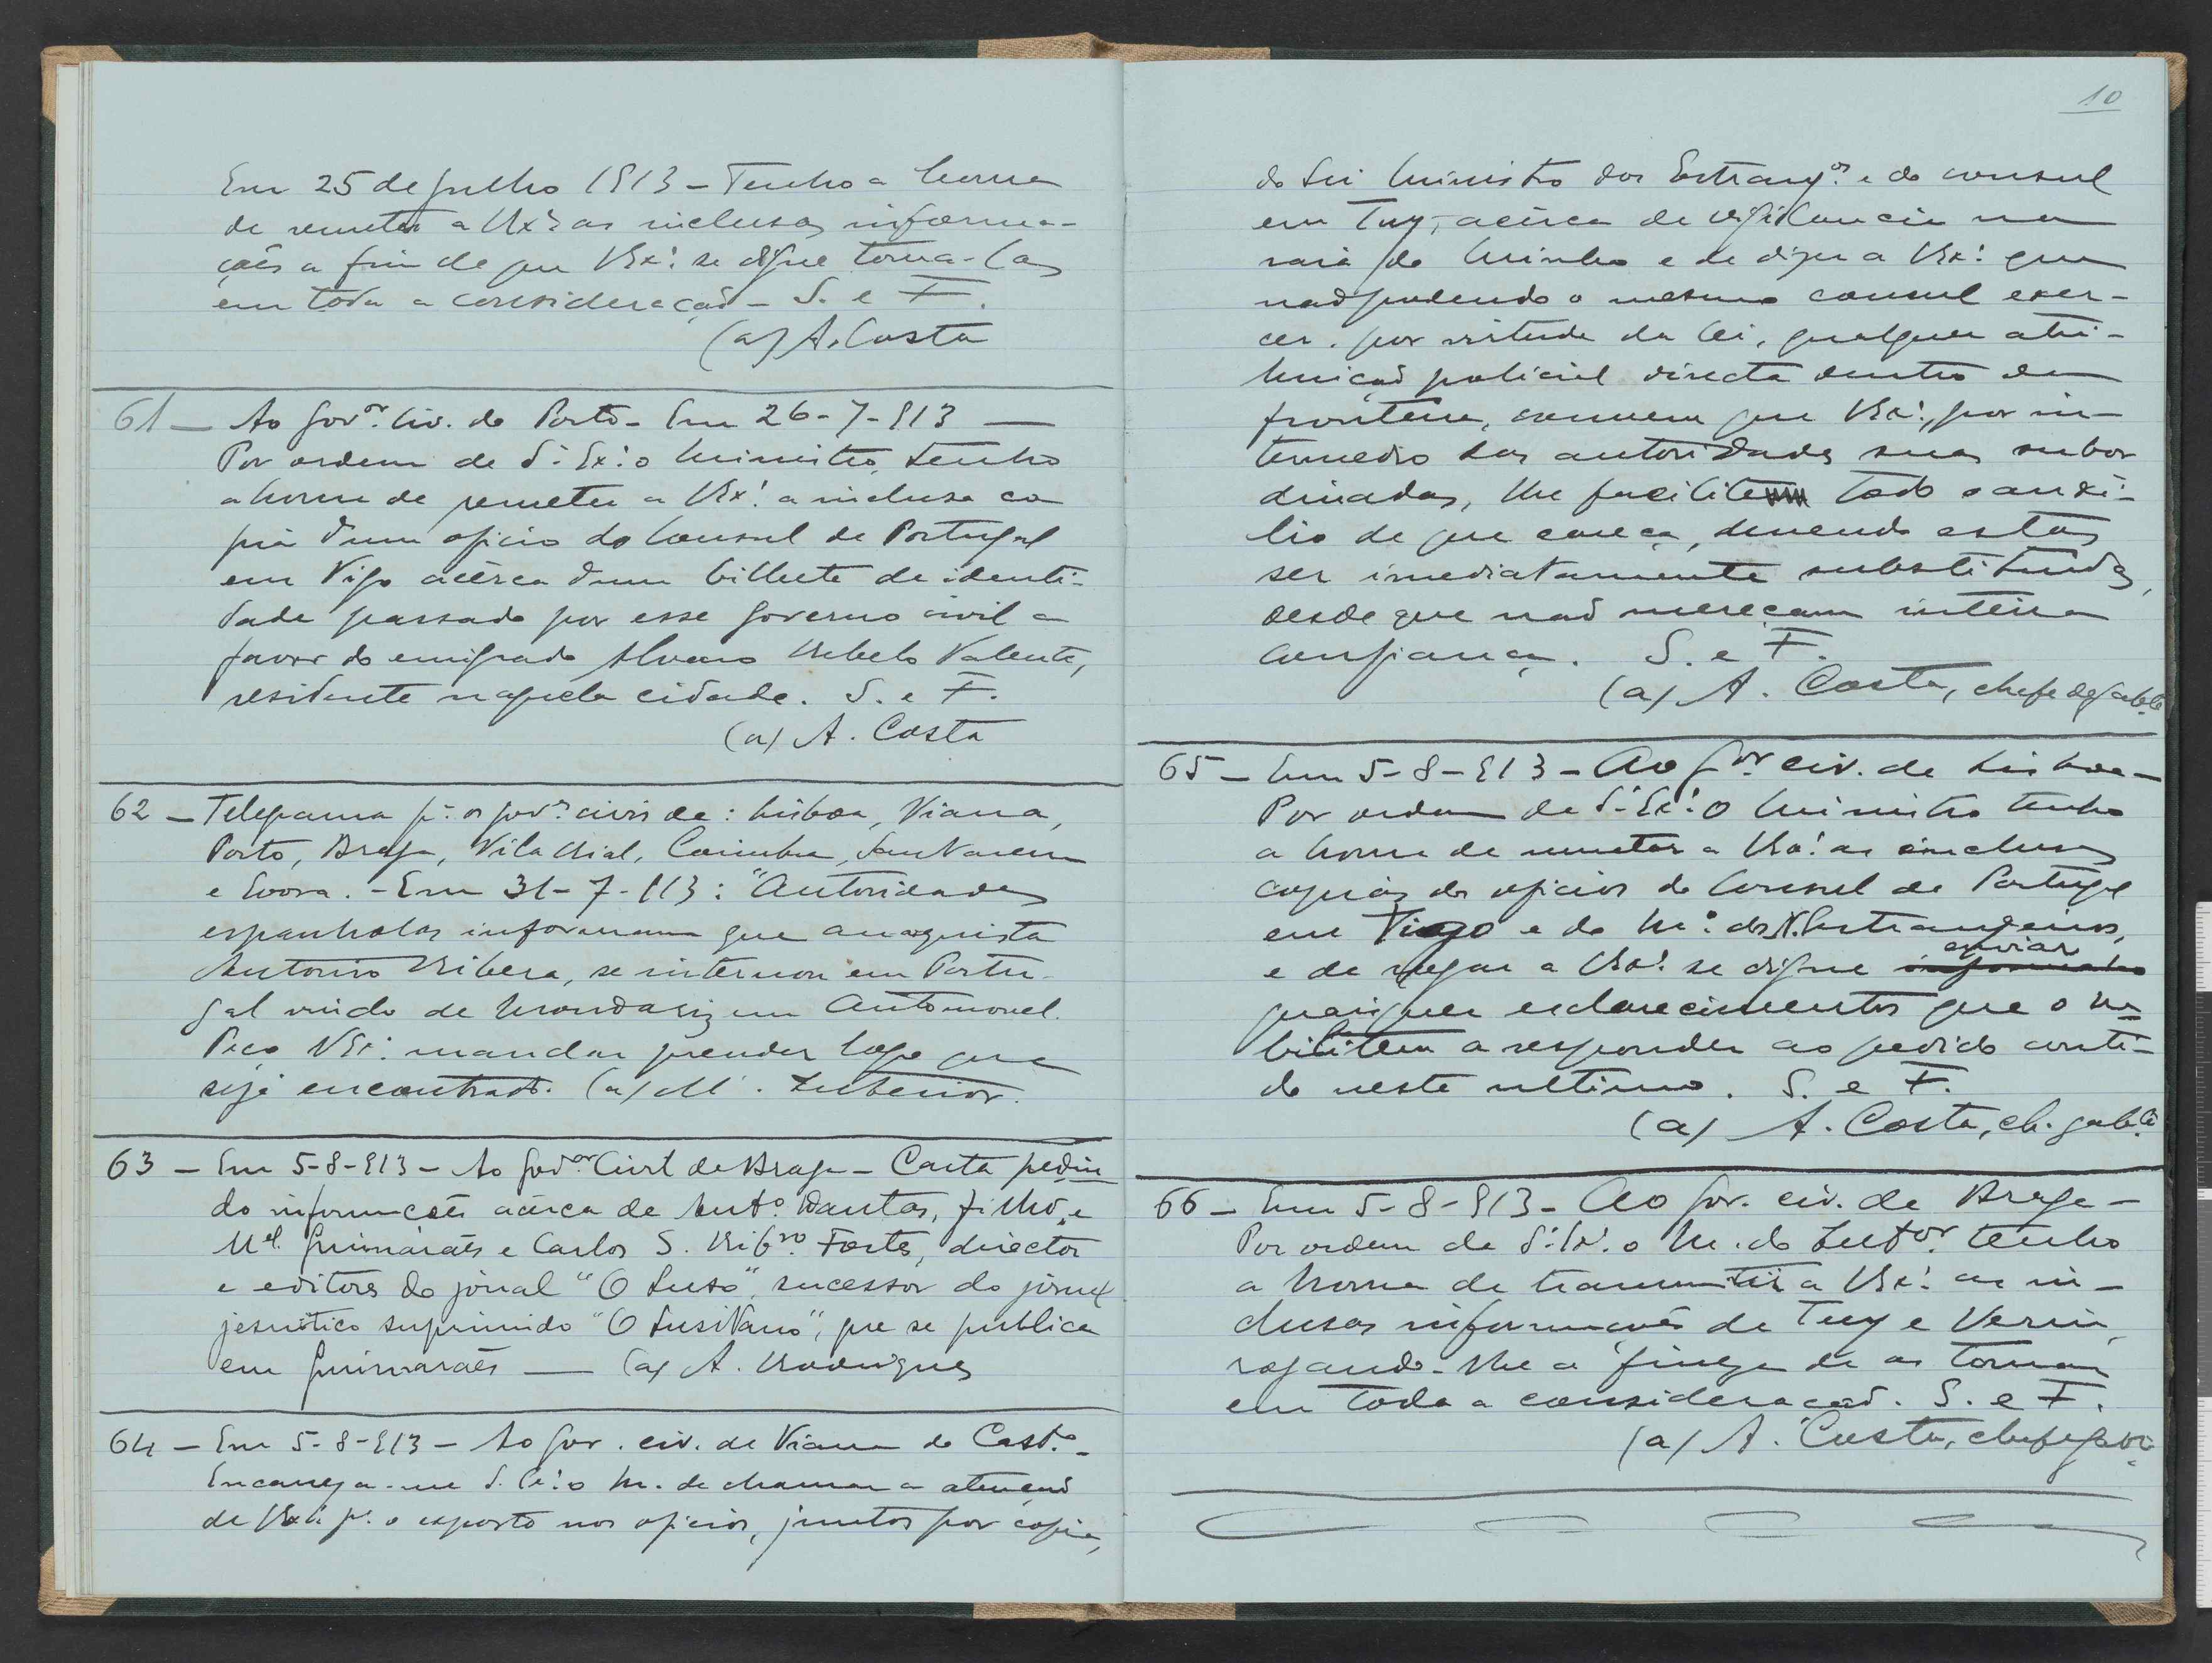 Em 25 de Julho 1913 - Tenho a honra
de remeter a V. Ex.ª as inclusas informa-
ções a fim de que V. Ex.ª se digne toma-las
em toda a consideração - S. e F.
(a) A. Costa
61 - Ao gov.or civ. do Porto - Em 26-7-913 -
Por ordem de S. Ex.ª o Ministro, tenho
a honra de remeter a V. Ex.ª a inclusa co
pia dum oficio do Consul de Portugal
em Vigo acêrca dum bilhete de identi-
dade passado por esse governo civil a
favor do emigrado Alvaro Rebelo Valente,
residente naquela cidade. S. e F.
(a) A. Costa
62 - Telegrama p.ª os gov.es civis de: Lisboa, Viana,
Porto, Braga, Vila Rial, Coimbra, Santarem
e Evora. - Em 31-7-913: "Autoridades
espanholas informam que anarquista
Antonio Ribera, se internou em Portu-
gal vindo de Mondariz em automovel.
Peço V. Ex.ª mandar prender logo que
seja encontrado. (a) M. Interior.
63 - Em 5-8-913 - Ao gov.or Civil de Braga - Carta pedin
do informações acêrca de Ant.o Dantas, filho, e
M.el Guimarães e Carlos S. Rib.ro Forte, director
e editores do jornal "O Luso", sucessor do jornal
jesuitico suprimido "O Lusitano", que se publica
em Guimarães - (a) A. Rodrigues
64 - Em 5-8-913 - Ao gov. civ. de Viana do Cast.o -
Encarrega-me S. Ex.ª o M. de chamar a atenção
de V. Ex.ª p.ª o exposto nos oficios, juntos por copia,
10
do Sr. Ministro dos Estrang.os e do consul
em Tuy, acêrca de vigilancia na
raia do Minho e de dizer a V. Ex.ª que
não podendo o mesmo consul exer-
cer, por virtude da lei, qualquer atri-
buição policial directa dentro da
fronteira, convem que V. Ex.ª, por in-
termedio das autoridades suas subor
dinadas, lhe facilite todo o auxi-
lio de que careça, devendo estas
ser imediatamente substituidas,
desde que não mereçam inteira
confiança. S. e F.
(a) A. Costa, chefe do gab.te
65 - Em 5-8-913 - Ao g.or civ. de Lisboa -
Por ordem de S. Ex.ª o Ministro tenho
a honra de remeter a V. Ex.ª as inclusas
copias dos oficios do Consul de Portugal
em Vigo e do M.o dos N. Estrangeiros,
e de rogar a V. Ex.ª se digne enviar
quaisquer esclarecimentos que o ha
bilitem a responder ao pedido conti-
do neste ultimo. S. e F.
(a) A. Costa, ch. gab.te
66 - Em 5-8-913 - Ao gov. civ. de Braga -
Por ordem de S. Ex.ª o M. do Int.or tenho
a honra de transmitir a V. Ex.ª as in-
clusas informações de Tuy e Verin,
rogando-lhe a fineza de as tomar
em toda a consideração. S. e F.
(a) A. Costa, chefe gab.te